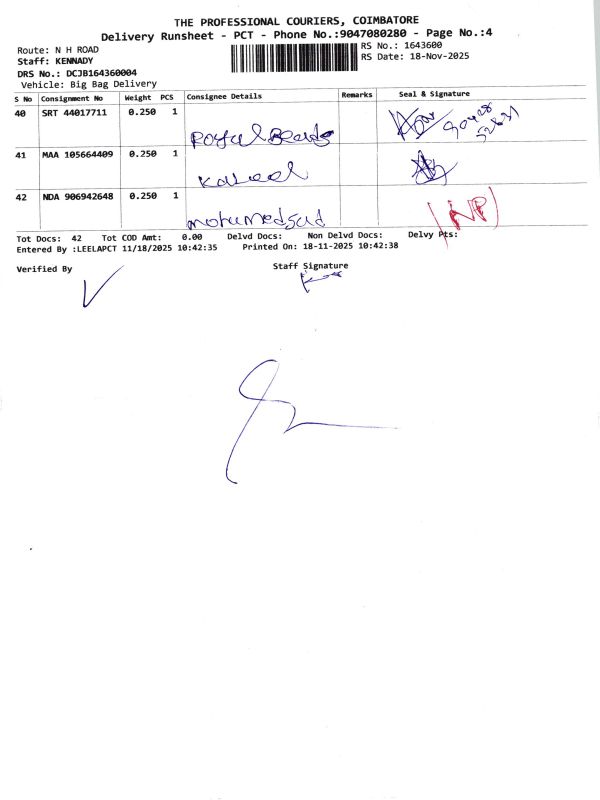 THE PROFESSIONAL COURIERS, COIMBATORE
Delivery Runsheet - PCT - Phone No.:9047080280 - Page No.:4
Route: N H ROAD
RS No.: 1643600
Staff: KENNADY
RS Date: 18-Nov-2025
DRS No.: DCJB164360004
Vehicle: Big Bag Delivery
S No Consignment No Weight PCS Consignee Details Remarks Seal & Signature
40 SRT 44017711 0.250 1 Royal Beards
41 MAA 105664409 0.250 1 Kaleel
42 NDA 906942648 0.250 1 mohamedsad NP
Tot Docs: 42 Tot COD Amt: 0.00 Delvd Docs: Non Delvd Docs: Delvy Pts:
Entered By :LEELAPCT 11/18/2025 10:42:35 Printed On: 18-11-2025 10:42:38
Verified By
Staff Signature